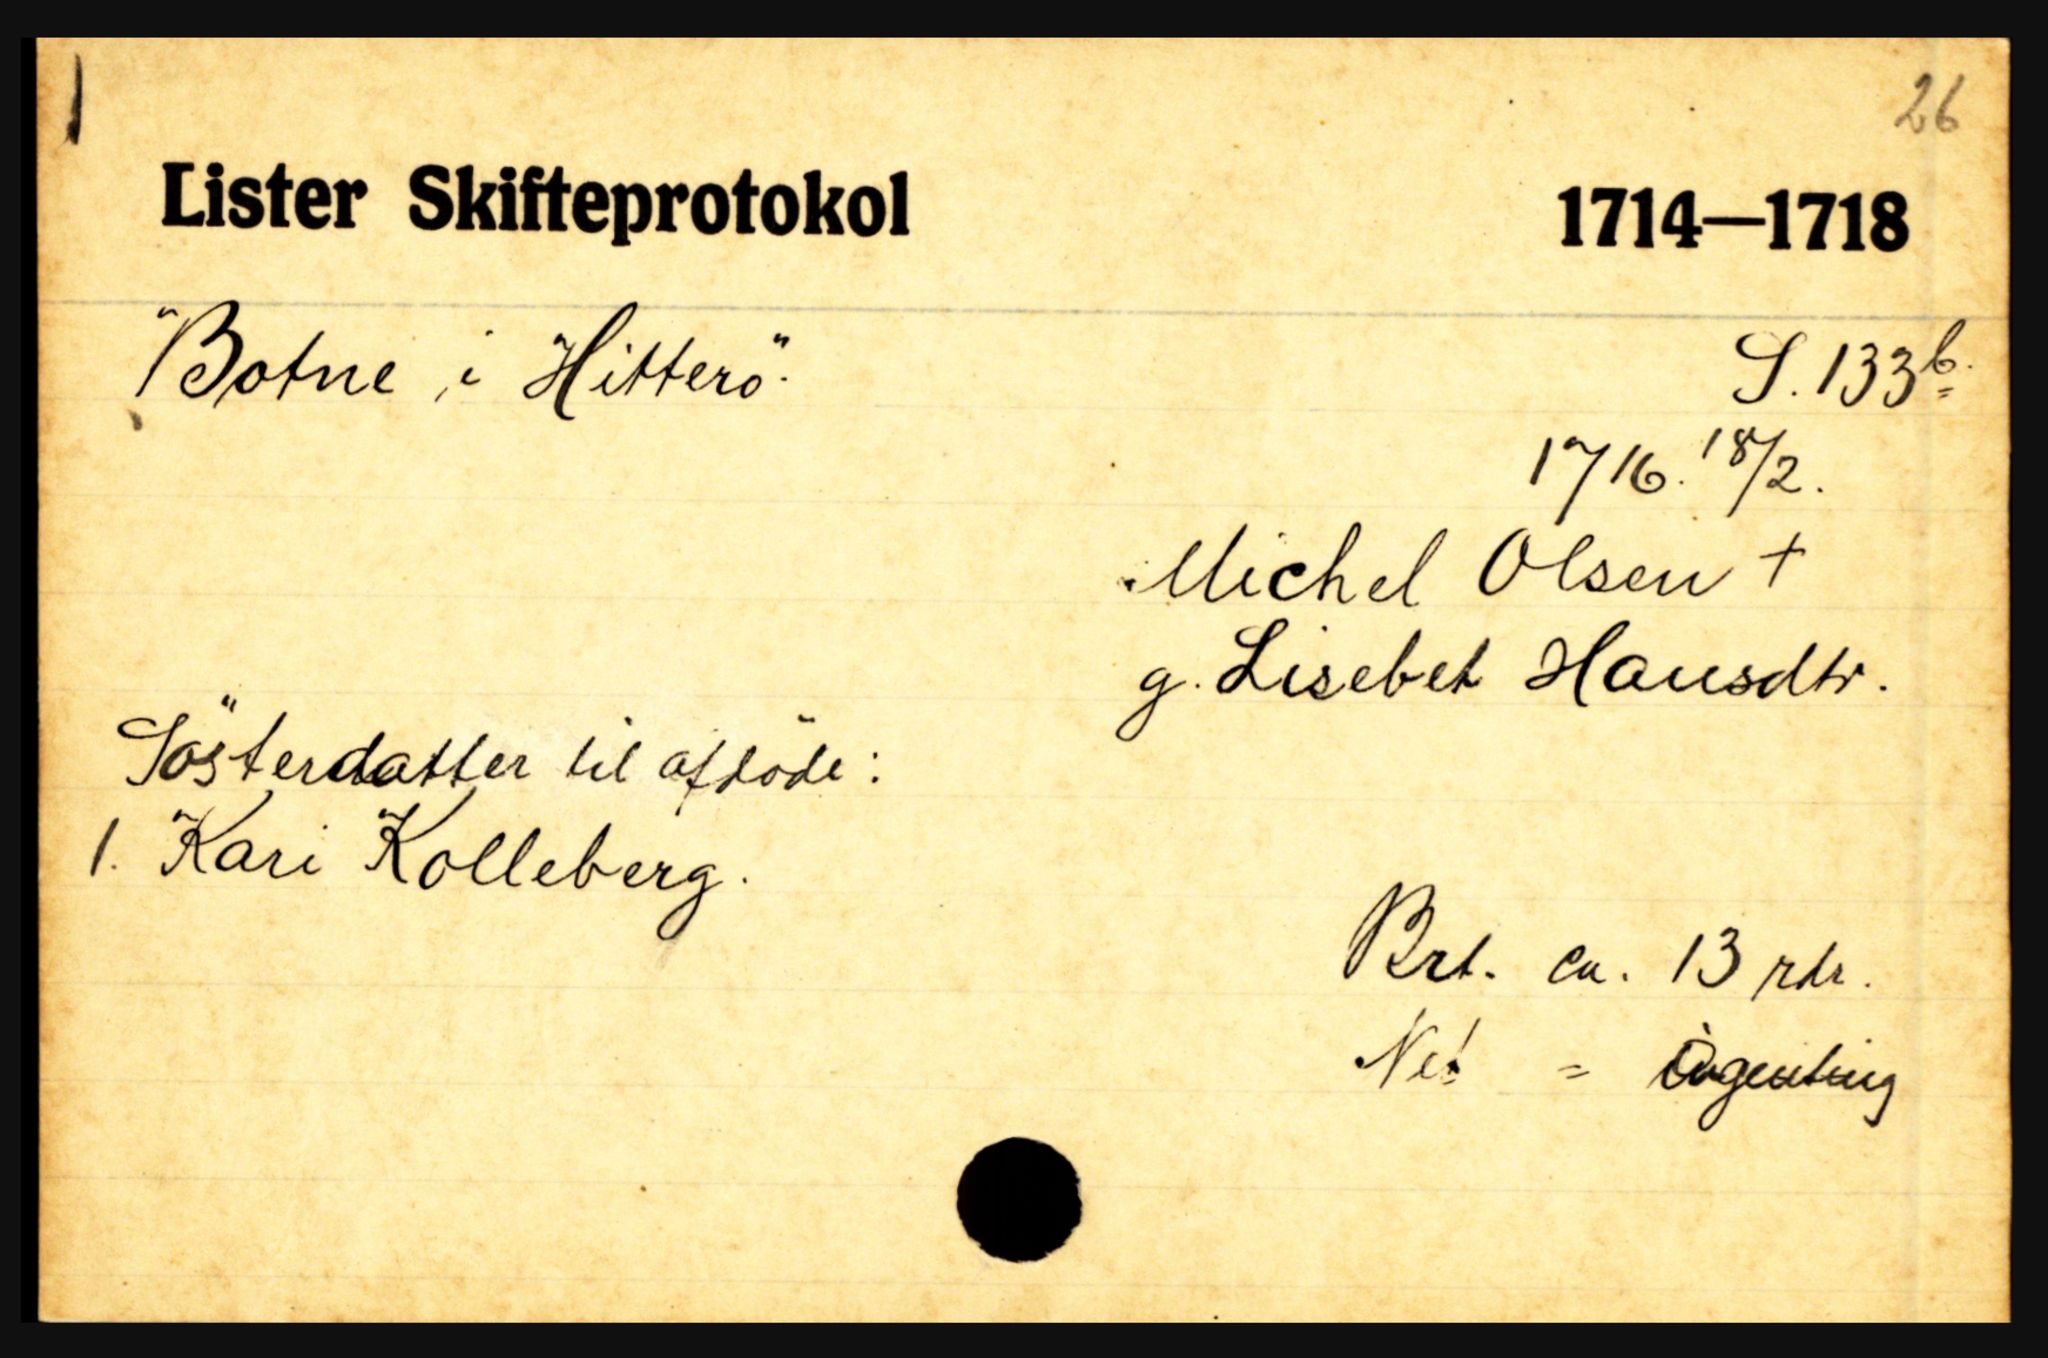 1
26
Lister Skifteprotokol 1714—1718
"Botne i Hitterö".
S. 133b.
1716. 18/2.
Michel Olsen +
g. Lisebet Hansdtr.
Sösterdatter til afdöde:
1. Kari Kolleberg.
Brt. ca. 13 rdr.
Net = ingenting